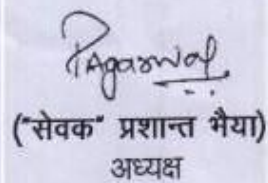 PAgarwal
("सेवक" प्रशान्त भैया)
अध्यक्ष